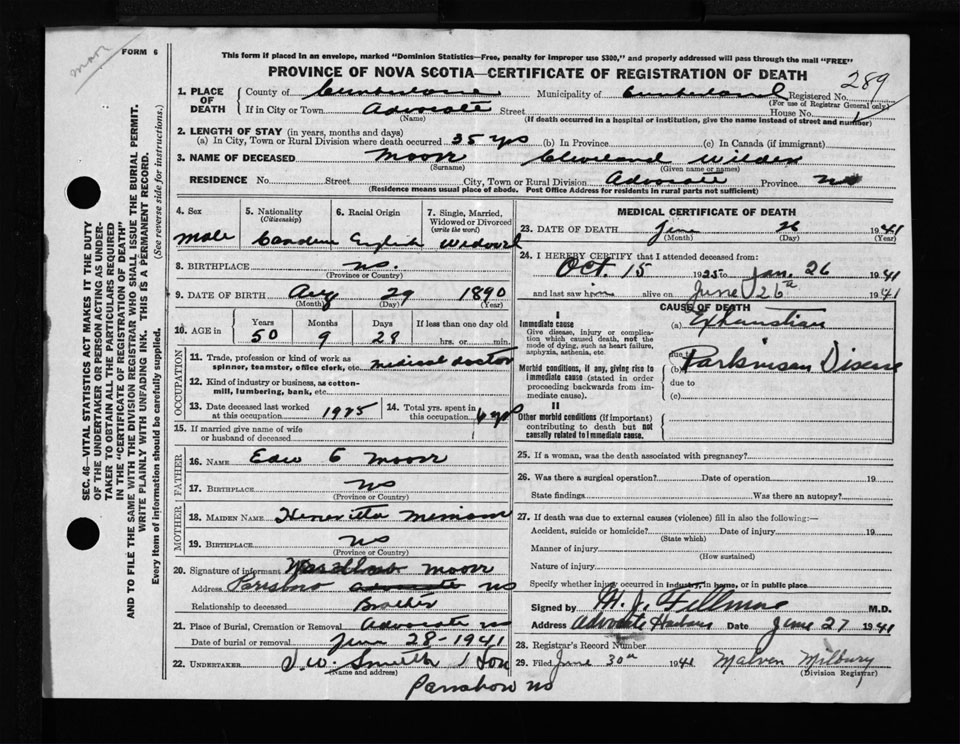 moor
FORM 6
This form if placed in an envelope, marked "Dominion Statistics—Free, penalty for improper use $300," and properly addressed will pass through the mail "FREE"
PROVINCE OF NOVA SCOTIA—CERTIFICATE OF REGISTRATION OF DEATH
289
1. PLACE OF DEATH
County of Cumberland Municipality of Cumberland Registered No.
(For use of Registrar General only)
If in City or Town Advocate Street House No.
(Name) (If death occurred in a hospital or institution, give the name instead of street and number)
2. LENGTH OF STAY (in years, months and days)
(a) In City, Town or Rural Division where death occurred 35 yrs (b) In Province (c) In Canada (if immigrant)
3. NAME OF DECEASED Moore Cleveland Wilder
(Surname) (Given name or names)
RESIDENCE No. Street City, Town or Rural Division Advocate Province NS
(Residence means usual place of abode. Post Office Address for residents in rural parts not sufficient)
4. Sex 5. Nationality (Citizenship) 6. Racial Origin 7. Single, Married, Widowed or Divorced (write the word)
Male Canadian English Widowed
8. BIRTHPLACE NS.
(Province or Country)
9. DATE OF BIRTH Aug 29 1890
(Month) (Day) (Year)
10. AGE in Years Months Days If less than one day old
50 9 28 hrs. or min.
OCCUPATION
11. Trade, profession or kind of work as spinner, teamster, office clerk, etc. medical doctor
12. Kind of industry or business, as cotton-mill, lumbering, bank, etc.
13. Date deceased last worked at this occupation 1925 14. Total yrs. spent in this occupation yrs
15. If married give name of wife or husband of deceased
FATHER
16. NAME Edw E Moore
17. BIRTHPLACE NS
(Province or Country)
MOTHER
18. MAIDEN NAME Henrietta Merriam
19. BIRTHPLACE NS
(Province or Country)
20. Signature of informant Moore
Address Parrsboro NS
Relationship to deceased Brother
21. Place of Burial, Cremation or Removal Advocate NS
Date of burial or removal June 28-1941
22. UNDERTAKER J.W. Smith & Son
(Name and address)
Parrsboro NS
MEDICAL CERTIFICATE OF DEATH
23. DATE OF DEATH June 26 1941
(Month) (Day) (Year)
24. I HEREBY CERTIFY that I attended deceased from:
Oct. 15 1925 to Jan. 26 1941
and last saw him alive on June 26th 1941
CAUSE OF DEATH
I
Immediate cause
Give disease, injury or complication which caused death, not the mode of dying, such as heart failure, asphyxia, asthenia, etc.
(a) Exhaustion
due to
Morbid conditions, if any, giving rise to immediate cause (stated in order proceeding backwards from immediate cause).
(b) Parkinson Disease
due to
(c)
II
Other morbid conditions (if important) contributing to death but not causally related to immediate cause.
25. If a woman, was the death associated with pregnancy?
26. Was there a surgical operation? Date of operation 19
State findings Was there an autopsy?
27. If death was due to external causes (violence) fill in also the following:—
Accident, suicide or homicide? Date of injury 19
(State which)
Manner of injury
(How sustained)
Nature of injury
Specify whether injury occurred in industry, in home, or in public place
Signed by H. J. Fillmore M.D.
Address Advocate Harbour Date June 27 1941
28. Registrar's Record Number
29. Filed June 30th 1941 Malven Milbury
(Division Registrar)
SEC. 46—VITAL STATISTICS ACT MAKES IT THE DUTY
OF THE UNDERTAKER OR PERSON ACTING AS UNDER-
TAKER TO OBTAIN ALL THE PARTICULARS REQUIRED
IN THE "CERTIFICATE OF REGISTRATION OF DEATH"
AND TO FILE THE SAME WITH THE DIVISION REGISTRAR WHO SHALL ISSUE THE BURIAL PERMIT.
WRITE PLAINLY WITH UNFADING INK. THIS IS A PERMANENT RECORD.
Every item of information should be carefully supplied. (See reverse side for instructions.)